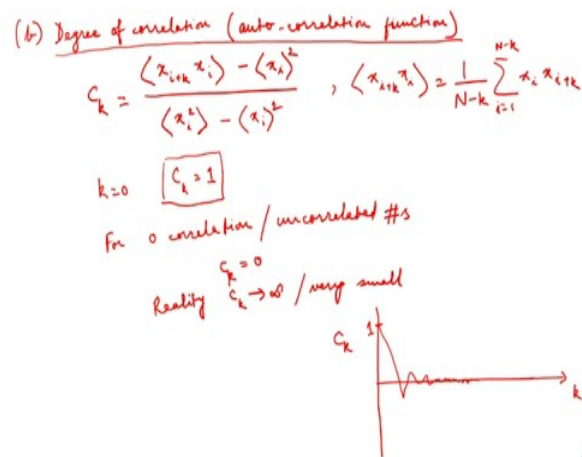 (b) Degree of correlation (auto-correlation function)
C_k = (⟨x_{i+k} x_i⟩ - ⟨x_i⟩²) / (⟨x_i²⟩ - ⟨x_i⟩²) , ⟨x_{i+k} x_i⟩ = 1/(N-k) ∑_{i=1}^{N-k} x_i x_{i+k}
k=0 C_k = 1
For 0 correlation / uncorrelated #s
C_k = 0
Reality C_k → / very small
C_k 1
k